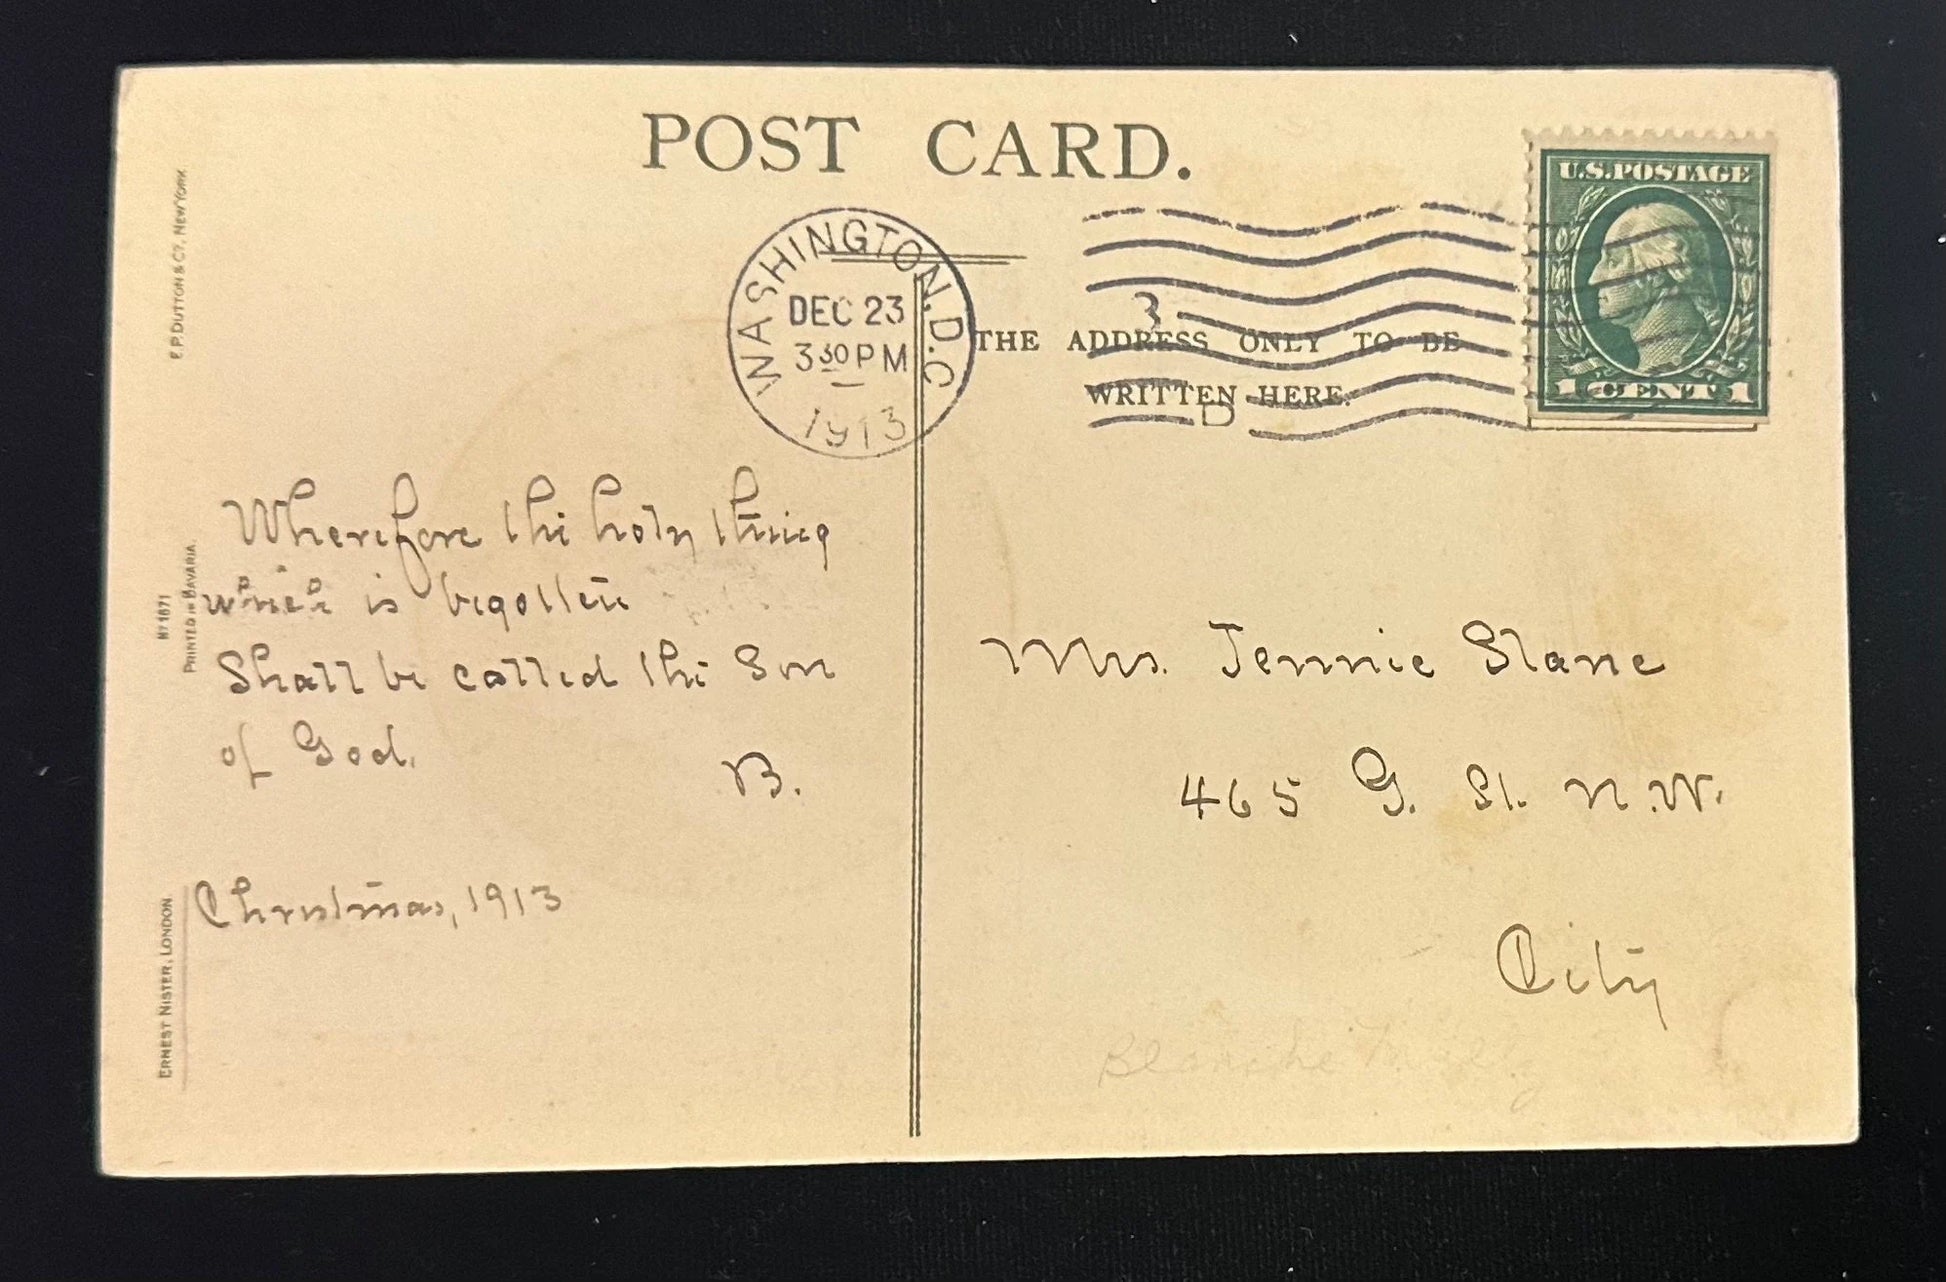 POST CARD.
U.S. POSTAGE
1 CENT 1
WASHINGTON, D.C.
DEC 23
3 30 PM
1913
3
D
THE ADDRESS ONLY TO BE
WRITTEN HERE.
E. P. DUTTON & CO. NEW YORK.
No 1671
PRINTED IN BAVARIA.
ERNEST NISTER, LONDON.
Wherefore the holy thing
which is begotten
Shall be called the Son
of God.
B.
Christmas, 1913
Mrs. Jennie Slane
465 G. St. N.W.
City
Blanche